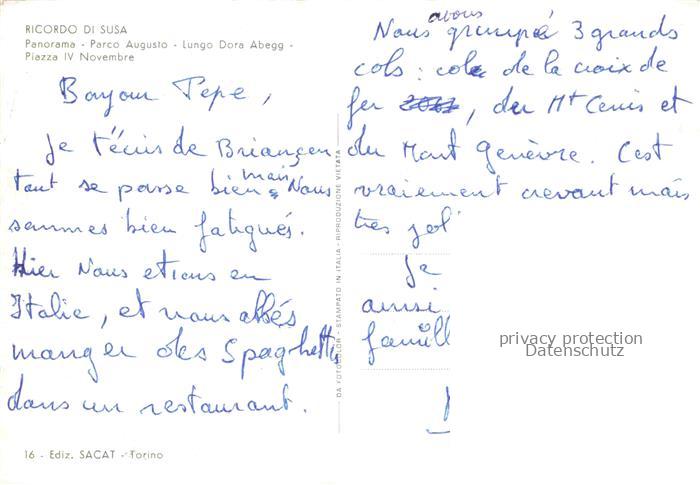 RICORDO DI SUSA
Panorama - Parco Augusto - Lungo Dora Abegg -
Piazza IV Novembre
Bonjour Pepe,
Je t'écris de Briançon
tout se passe bien mais Nous
sommes bien fatigués.
Hier Nous etions en
Italie, et nous
manger des Spaghettis
dans un restaurant.
16 - Ediz. SACAT - Torino
DA FOTOCOLOR - STAMPATO IN ITALIA - RIPRODUZIONE VIETATA
Nous avons grimpé 3 grands
cols : cols de la croix de
fer, du Mt Cenis et
du Mont Genèvre. C'est
vraiement crevant mais
tres jol
Je
ainsi
famill
privacy protection
Datenschutz